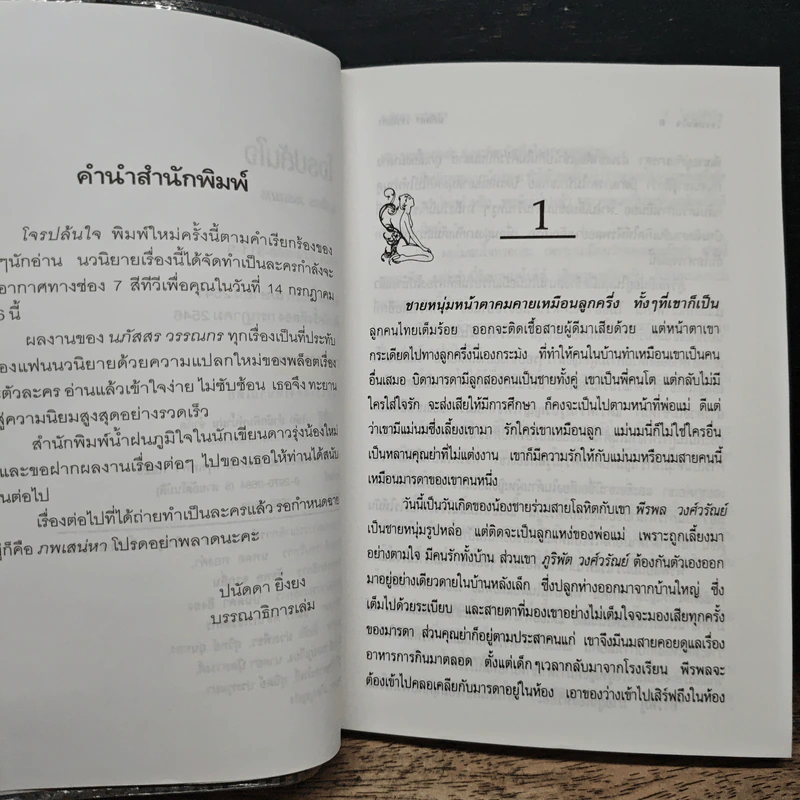 คำนำสำนักพิมพ์
โจรปล้นใจ พิมพ์ใหม่ครั้งนี้ตามคำเรียกร้องของ
ๆนักอ่าน นวนิยายเรื่องนี้ได้จัดทำเป็นละครกำลังจะ
อากาศทางช่อง 7 สีทีวีเพื่อคุณในวันที่ 14 กรกฎาคม
6 นี้
ผลงานของ นภัสสร วรรณกร ทุกเรื่องเป็นที่ประทับ
องแฟนนวนิยายด้วยความแปลกใหม่ของพล็อตเรื่อง
ตัวละคร อ่านแล้วเข้าใจง่าย ไม่ซับซ้อน เธอจึง ทะยาน
สู่ความนิยมสูงสุดอย่างรวดเร็ว
สำนักพิมพ์น้ำฝนภูมิใจในนักเขียนดาวรุ่งน้องใหม่
และขอฝากผลงานเรื่องต่อๆ ไปของเธอให้ท่านได้สนับ
นต่อไป
เรื่องต่อไปที่ได้ถ่ายทำเป็นละครแล้ว รอกำหนดฉาย
ก็คือ ภพเสน่หา โปรดอย่าพลาดนะคะ
ปนัดดา ยิ่งยง
บรรณาธิการเล่ม
1
ชายหนุ่มหน้าตาคมคายเหมือนลูกครึ่ง ทั้งๆที่เขาก็เป็น
ลูกคนไทยเต็มร้อย ออกจะติดเชื้อสายผู้ดีมาเสียด้วย แต่หน้าตาเขา
กระเดียดไปทางลูกครึ่งนี่เองกระมัง ที่ทำให้คนในบ้านทำเหมือนเขาเป็นคน
อื่นเสมอ บิดามารดามีลูกสองคนเป็นชายทั้งคู่ เขาเป็นพี่คนโต แต่กลับไม่มี
ใครใส่ใจรัก จะส่งเสียให้มีการศึกษา ก็คงจะเป็นไปตามหน้าที่พ่อแม่ ดีแต่
ว่าเขามีแม่นมซึ่งเลี้ยงเขามา รักใคร่เขาเหมือนลูก แม่นมนี่ก็ไม่ใช่ใครอื่น
เป็นหลานคุณย่าที่ไม่แต่งงาน เขาก็มีความรักให้กับแม่นมหรือนมสายคนนี้
เหมือนมารดาของเขาคนหนึ่ง
วันนี้เป็นวันเกิดของน้องชายร่วมสายโลหิตกับเขา พีรพล วงศ์วรัณย์
เป็นชายหนุ่มรูปหล่อ แต่ติดจะเป็นลูกแหง่ของพ่อแม่ เพราะถูกเลี้ยงมา
อย่างตามใจ มีคนรักทั้งบ้าน ส่วนเขา ภูริพัต วงศ์วรัณย์ ต้องกันตัวเองออก
มาอยู่อย่างเดียวดายในบ้านหลังเล็ก ซึ่งปลูกห่างออกมาจากบ้านใหญ่ ซึ่ง
เต็มไปด้วยระเบียบ และสายตาที่มองเขาอย่างไม่เต็มใจจะมองเสียทุกครั้ง
ของมารดา ส่วนคุณย่าก็อยู่ตามประสาคนแก่ เขาจึงมีนมสายคอยดูแลเรื่อง
อาหารการกินมาตลอด ตั้งแต่เด็กๆเวลากลับมาจากโรงเรียน พีรพลจะ
ต้องเข้าไปคลอเคลียกับมารดาอยู่ในห้อง เอาของว่างเข้าไปเสิร์ฟถึงในห้อง